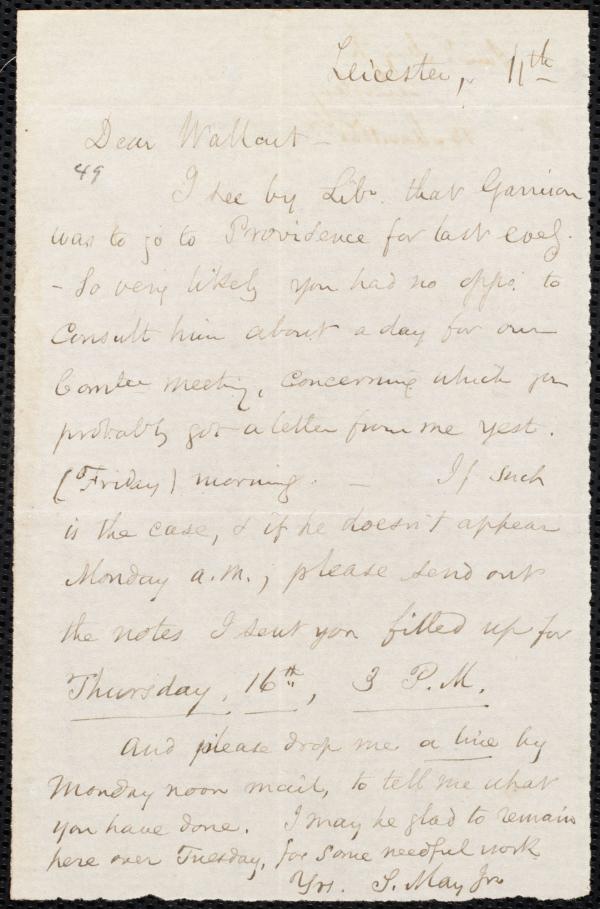 Leicester, 11th
Dear Wallcut -
49
I see by Libr. that Garrison
was to go to Providence for last eveg.
- So very likely you had no oppy. to
consult him about a day for our
Comtee meeting, concerning which you
probably got a letter from me yest.
(Friday) morning. - If such
is the case, & if he doesn't appear
Monday a.m., please send out
the notes I sent you filled up for
Thursday, 16th, 3 P.M.
And please drop me a line by
Monday noon mail, to tell me what
you have done. I may be glad to remain
here over Tuesday, for some needful work
Yrs. S. May Jr.